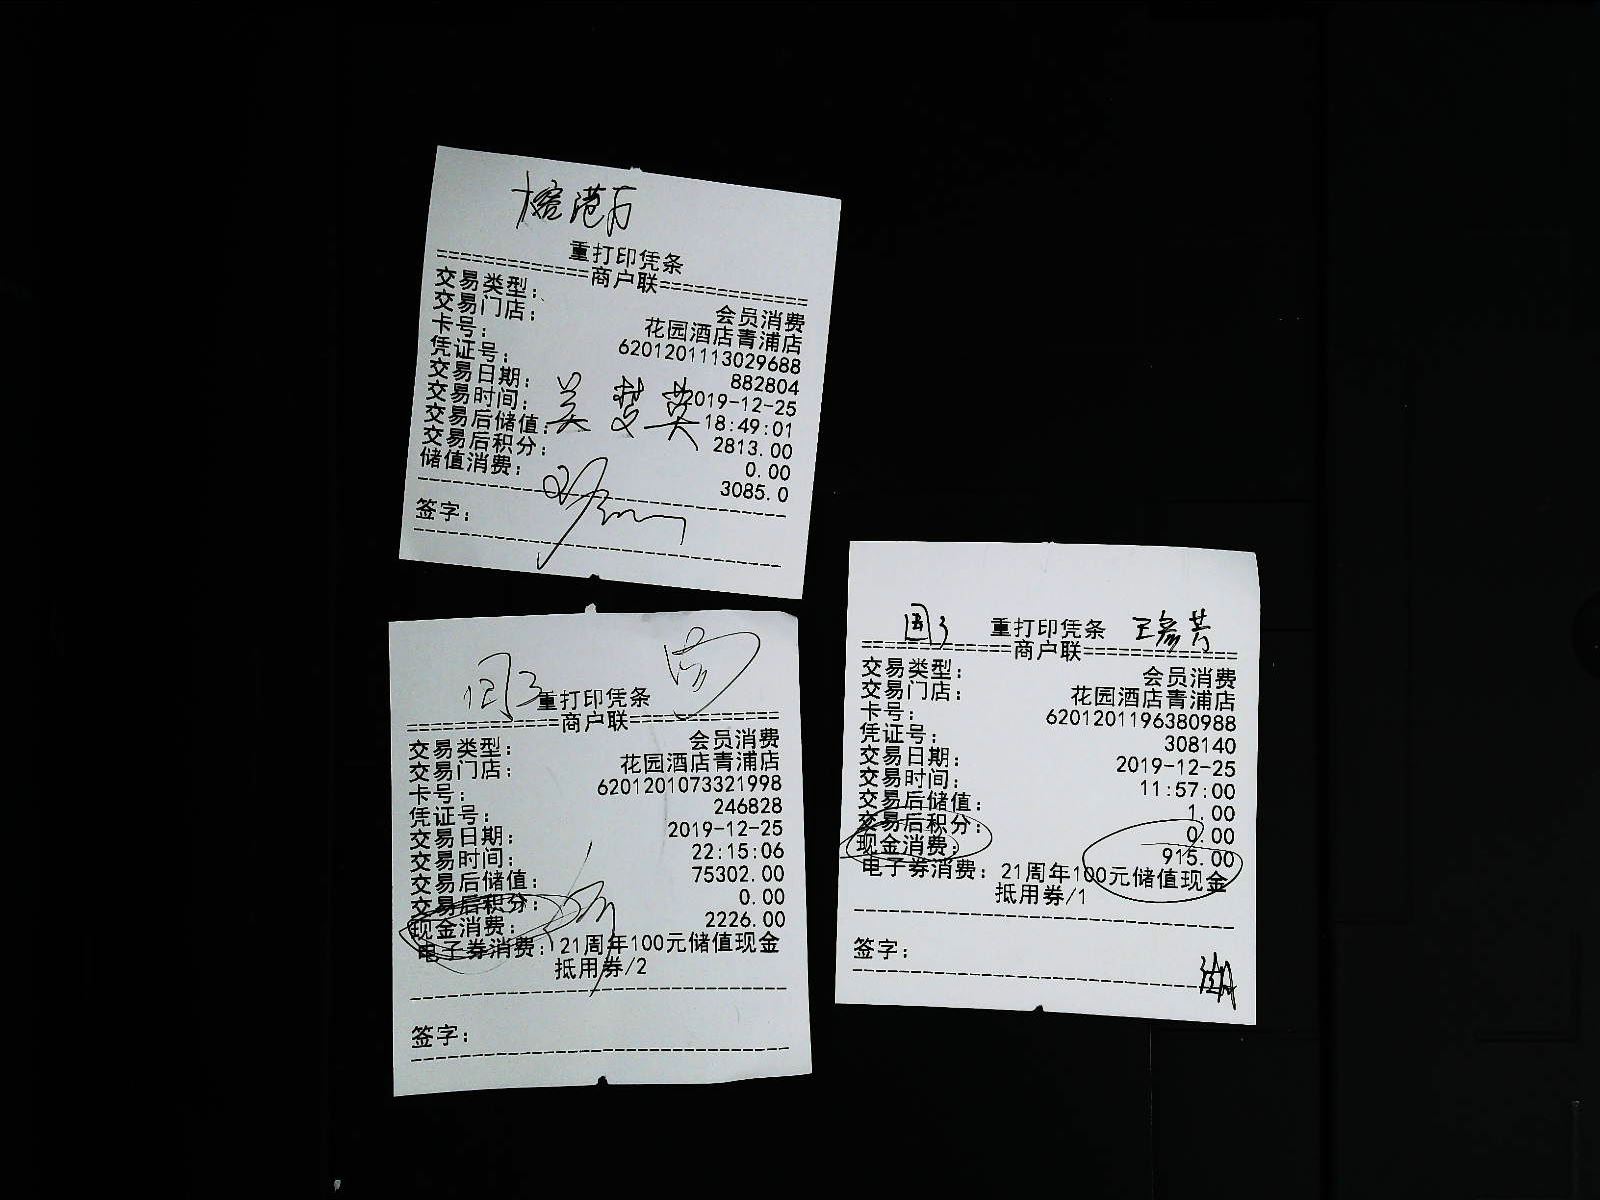 重打印凭条
=============商户联=============
交易类型: 会员消费
交易门店: 花园酒店青浦店
卡号: 6201201113029688
凭证号: 882804
交易日期: 2019-12-25
交易时间: 18:49:01
交易后储值: 2813.00
交易后积分: 0.00
储值消费: 3085.0
签字:
重打印凭条
=============商户联=============
交易类型: 会员消费
交易门店: 花园酒店青浦店
卡号: 6201201073321998
凭证号: 246828
交易日期: 2019-12-25
交易时间: 22:15:06
交易后储值: 75302.00
交易后积分: 0.00
现金消费: 2226.00
电子券消费: 21周年100元储值现金
抵用券/2
签字:
重打印凭条
=============商户联=============
交易类型: 会员消费
交易门店: 花园酒店青浦店
卡号: 6201201196380988
凭证号: 308140
交易日期: 2019-12-25
交易时间: 11:57:00
交易后储值: 1.00
交易后积分: 0.00
现金消费: 915.00
电子券消费: 21周年100元储值现金
抵用券/1
签字: